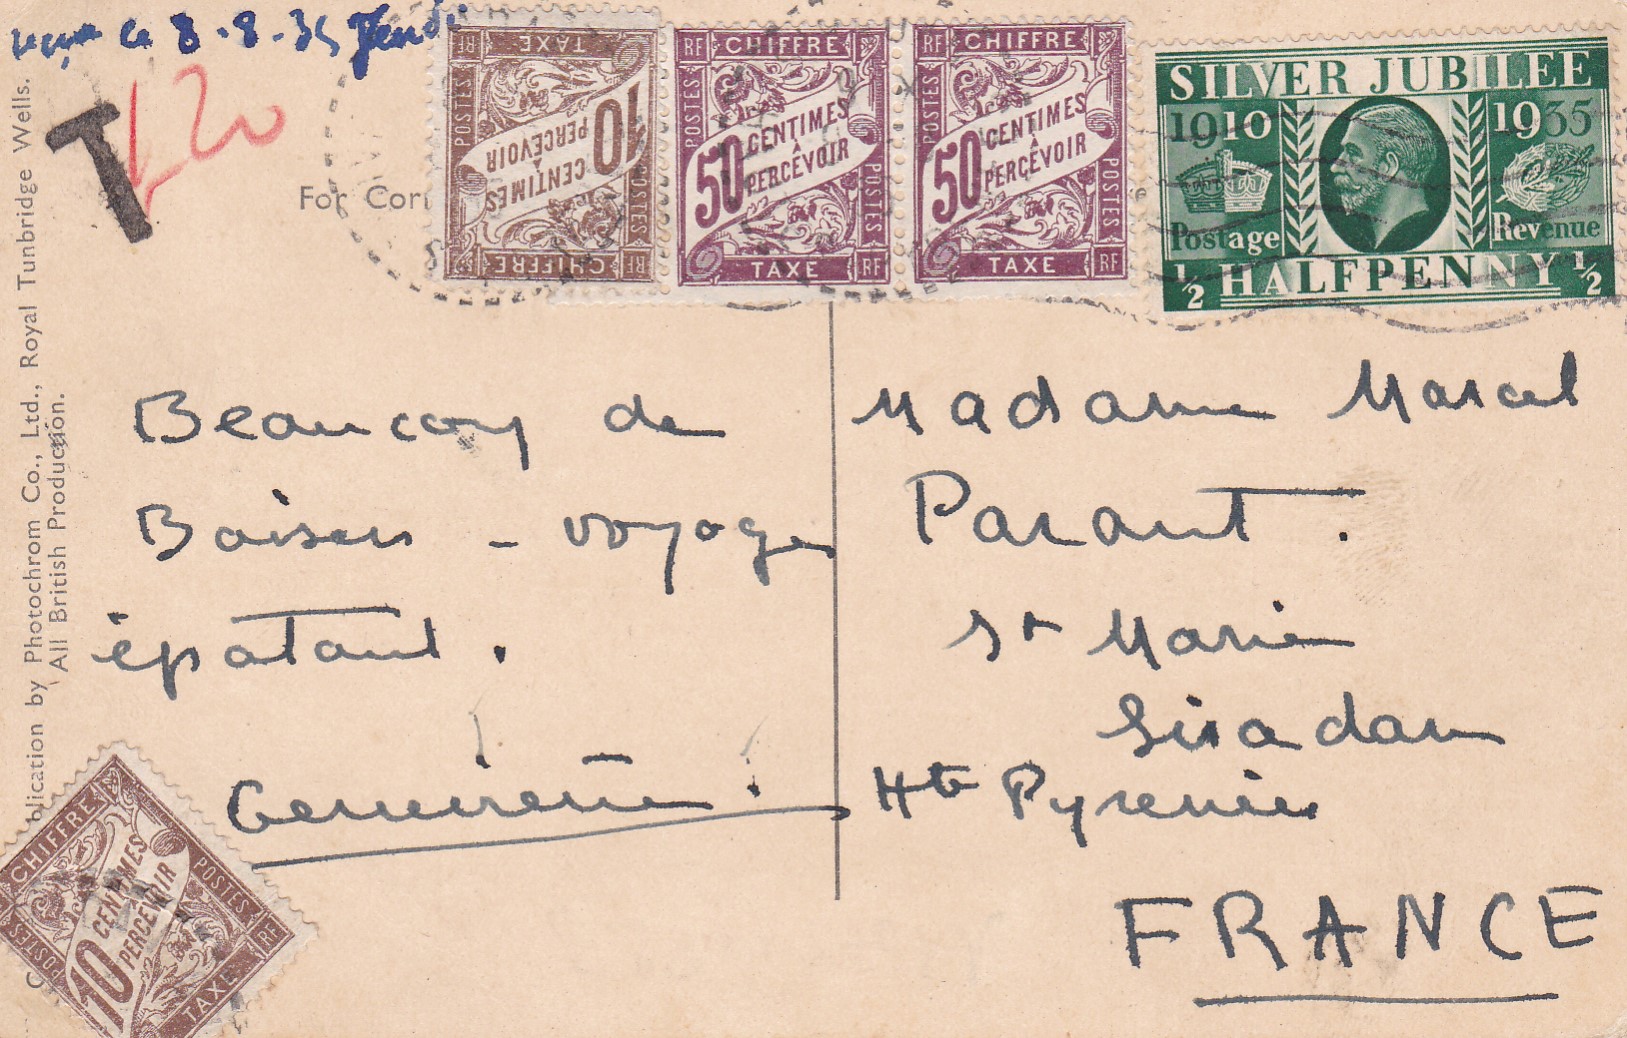 reçue le 8-8-35 Jeudi
T
1,20
For Corr
RF CHIFFRE
POSTES
10 CENTIMES
À
PERCEVOIR
POSTES
TAXE RF
RF CHIFFRE
POSTES
50 CENTIMES
À
PERCEVOIR
POSTES
TAXE RF
RF CHIFFRE
POSTES
50 CENTIMES
À
PERCEVOIR
POSTES
TAXE RF
SILVER JUBILEE
1910 1935
Postage Revenue
1/2 HALFPENNY 1/2
Beaucoup de
Baisers - voyage
épatant.
Geneviève.
Madame Marcel
Parant.
St Marie
Siradan
Htes Pyrénées
FRANCE
blication by Photochrom Co., Ltd., Royal Tunbridge Wells.
All British Production.
CHIFFRE
POSTES
10 CENTIMES
À
PERCEVOIR
POSTES
TAXE RF